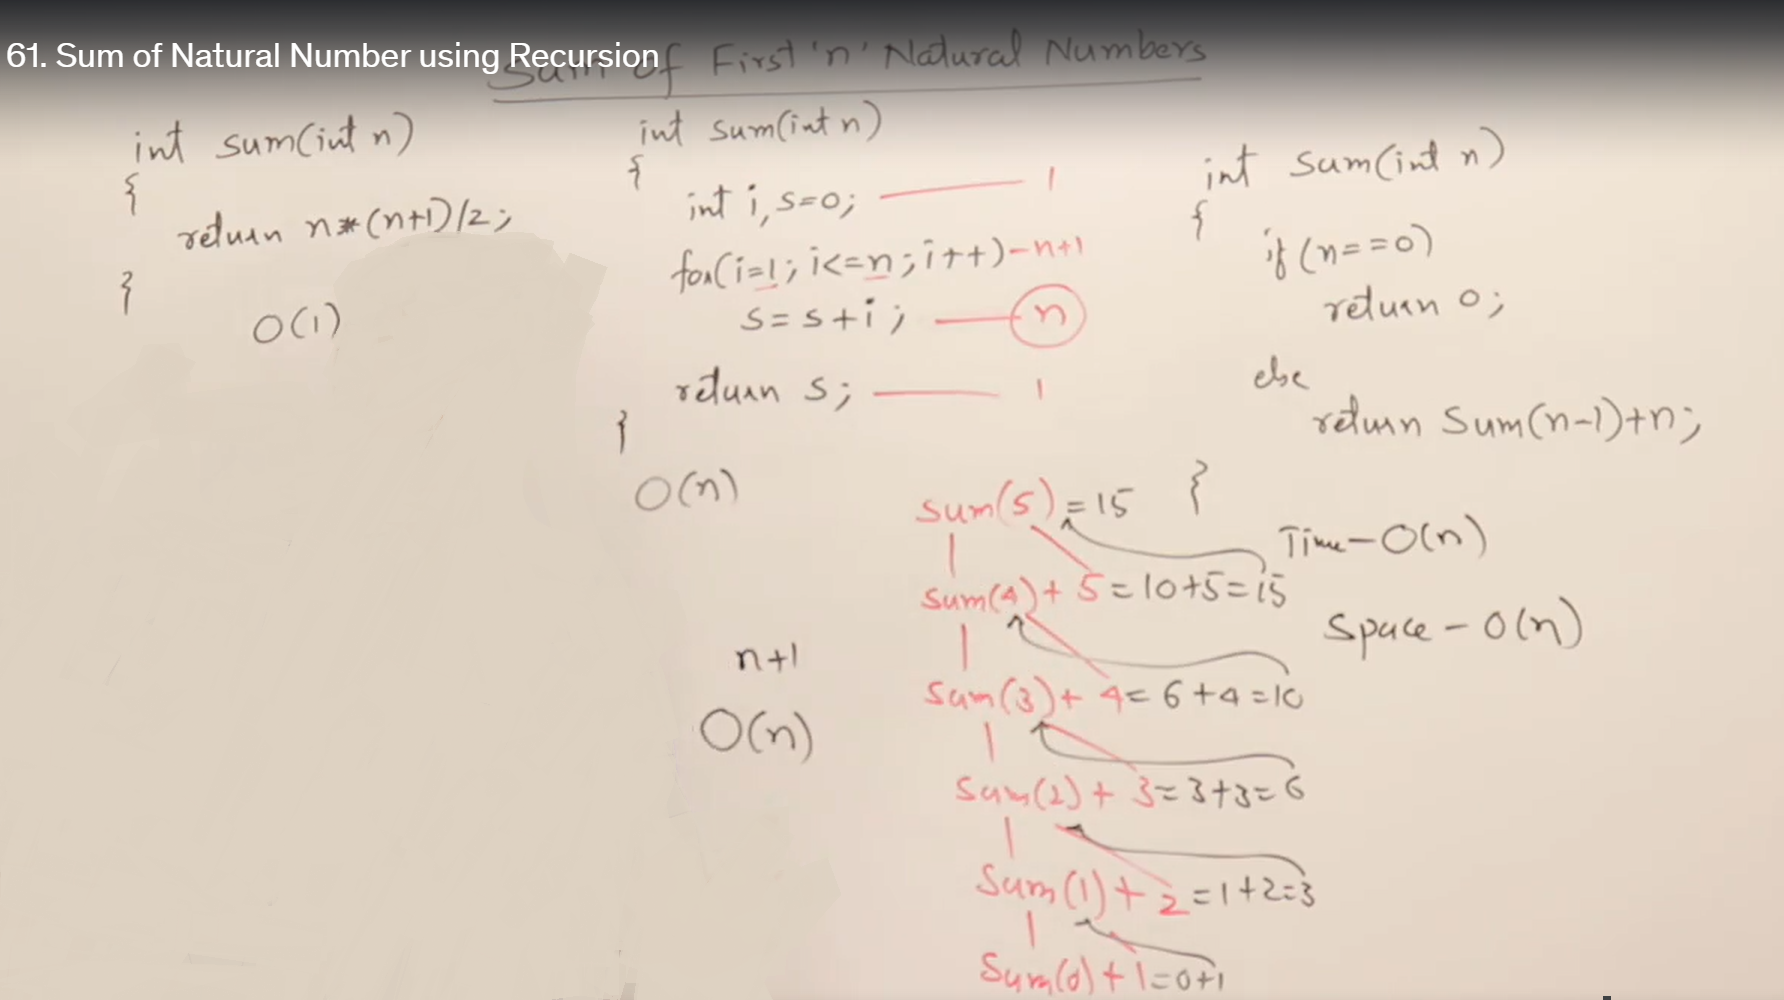 61. Sum of Natural Number using Recursion
Sum of First 'n' Natural Numbers
int sum(int n)
{
return n*(n+1)/2;
}
O(1)
int sum(int n)
{
int i, s=0; — 1
for(i=1; i<=n; i++) - n+1
s=s+i; — n
return s; — 1
}
O(n)
int sum(int n)
{
if (n==0)
return 0;
else
return Sum(n-1)+n;
}
Time - O(n)
Space - O(n)
n+1
O(n)
Sum(5) = 15
Sum(4) + 5 = 10+5=15
Sum(3) + 4 = 6+4=10
Sum(2) + 3 = 3+3=6
Sum(1) + 2 = 1+2=3
Sum(0) + 1 = 0+1